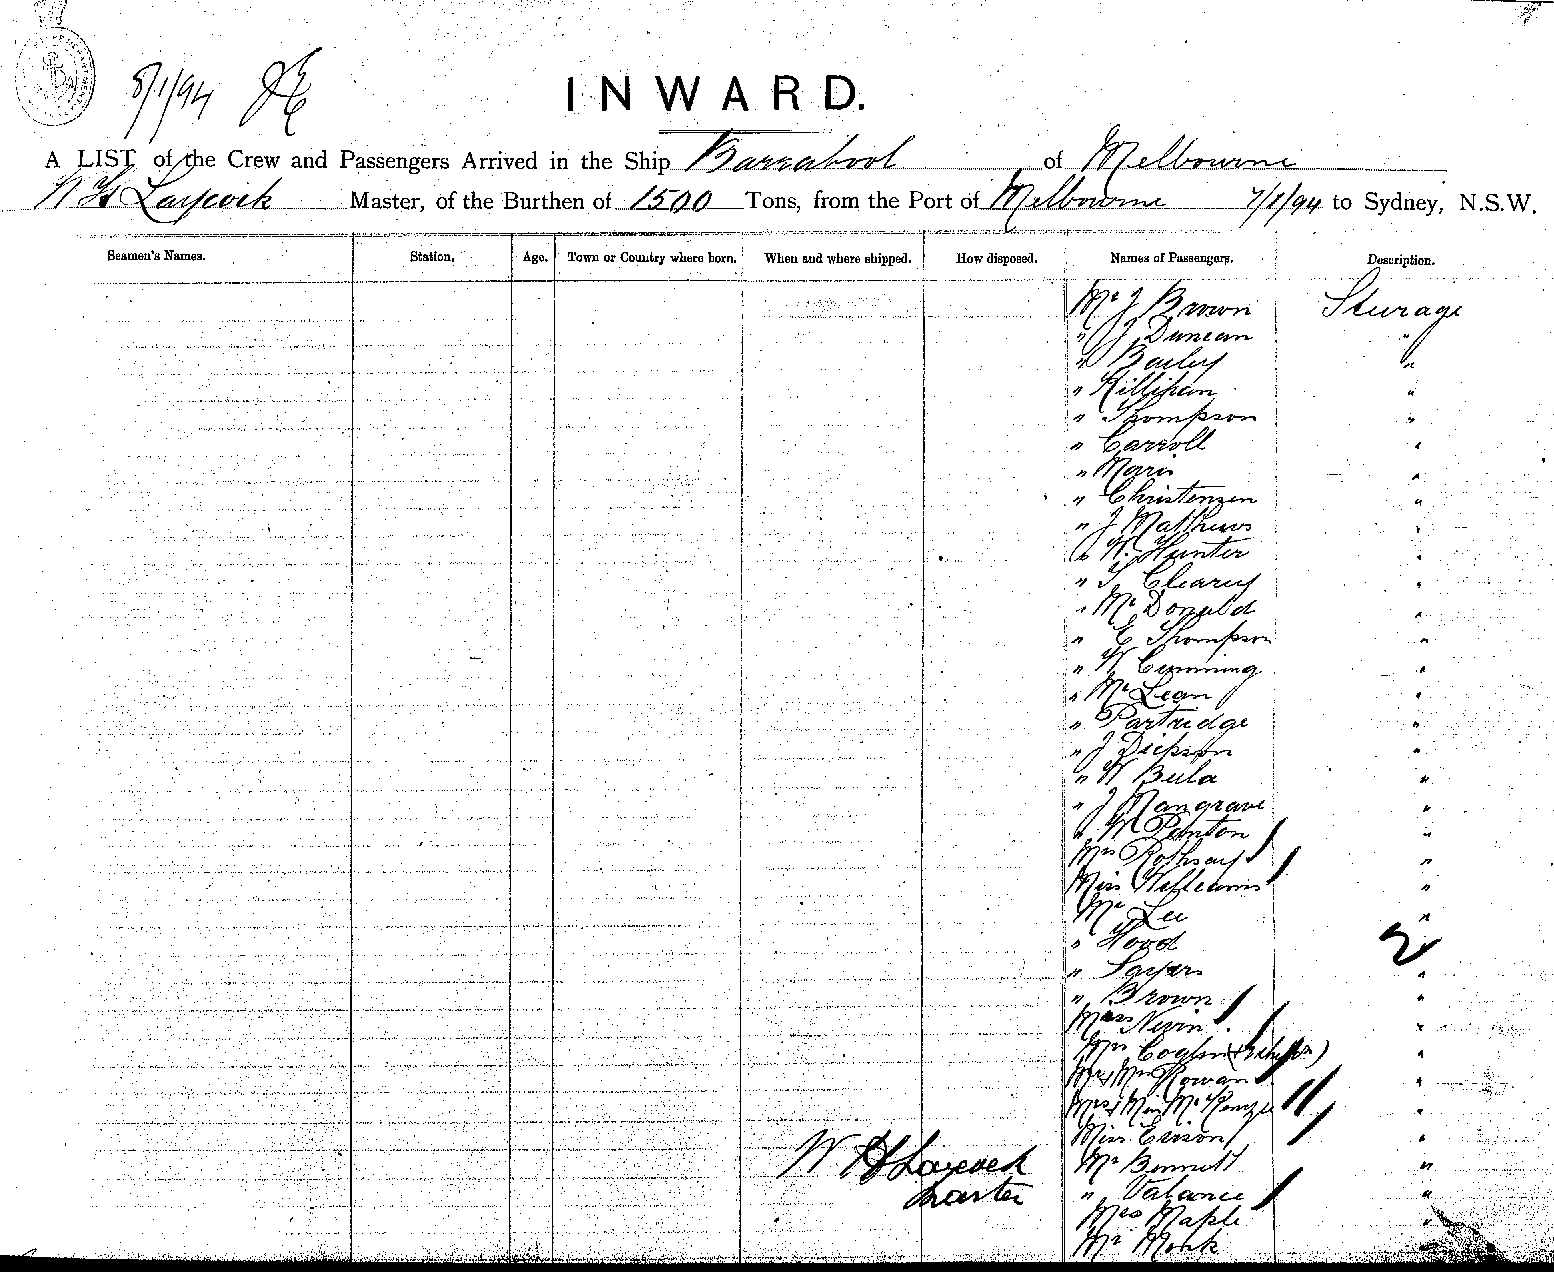 8/1/94
INWARD.
A LIST of the Crew and Passengers Arrived in the Ship Barrabool of Melbourne
W H Laycock Master, of the Burthen of 1500 Tons, from the Port of Melbourne 7/1/94 to Sydney, N.S.W.
Seamen's Names. Station. Age. Town or Country where born. When and where shipped. How disposed. Names of Passengers. Description.
Mr J Brown Steerage
" J Duncan "
" Bailey "
" Killihan "
" Thompson "
" Carroll "
" Maris "
" Christensen "
" J Mathews "
" W. Hunter "
" T Cleary "
" McDonald "
" E Thompson "
" W Cumming "
" McLean "
" Partridge "
" J Dickson "
" W Bula "
" J Mangrave "
" W Penton "
Mrs Rothsay "
Miss Williams "
Mr Lee "
" Hood 2
" Sayers "
" Brown "
Mrs Nevin "
Mrs Coglin "
Mr & Mrs Rowan "
Mrs & Miss McKenzie "
Miss Erison "
Mr Bennett "
W H Laycock
" Valance "
Master
Mrs Maple "
Mr Monk